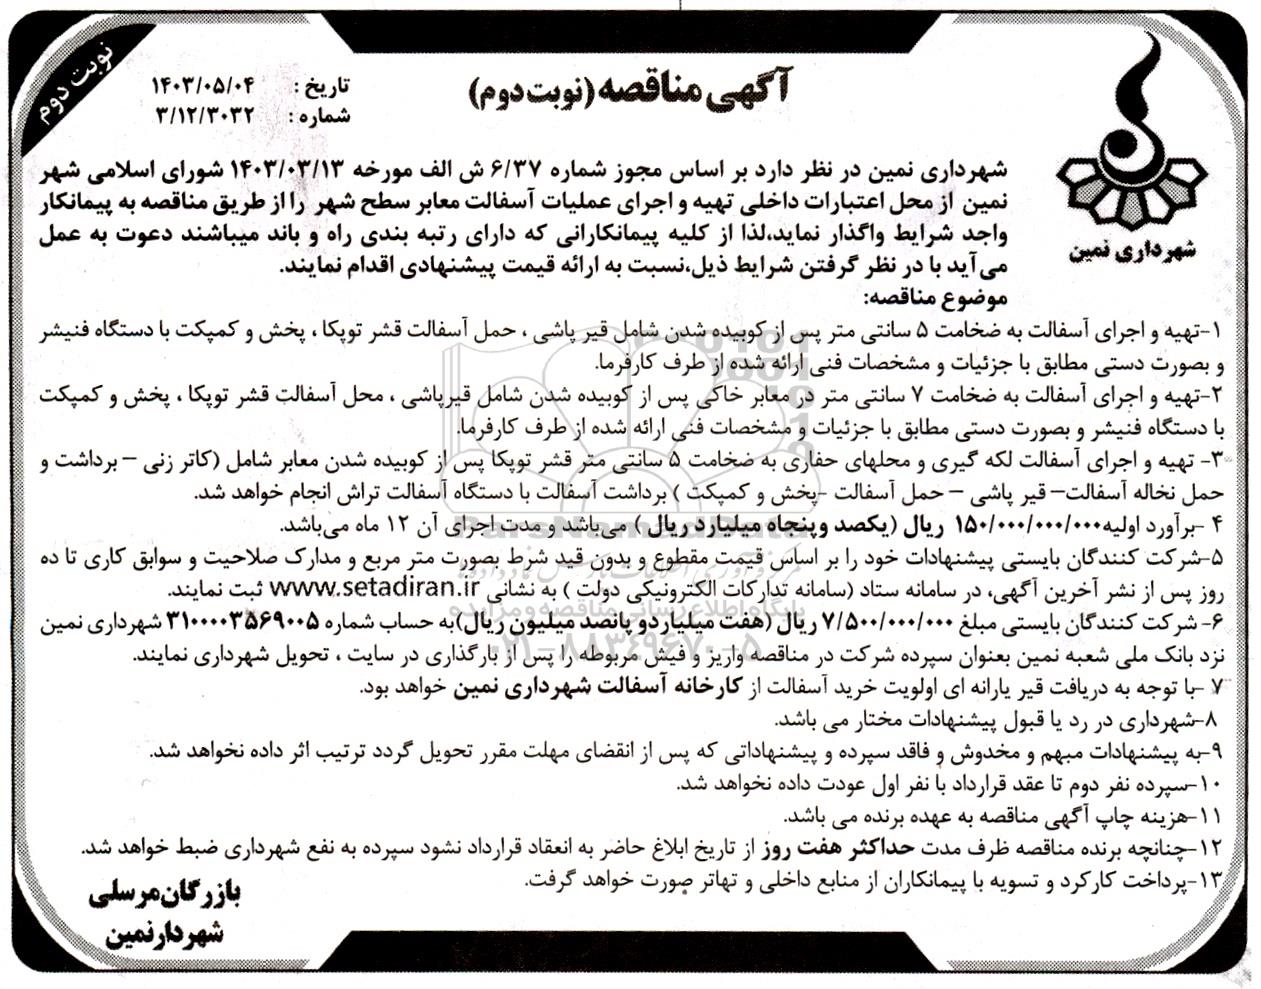 نوبت دوم
آگهی مناقصه (نوبت دوم)
تاریخ : ۱۴۰۳/۰۵/۰۴
شماره : ۳/۱۲/۳۰۳۲
شهرداری نمین
شهرداری نمین در نظر دارد بر اساس مجوز شماره ۶/۳۷ ش الف مورخه ۱۴۰۳/۰۳/۱۳ شورای اسلامی شهر
نمین از محل اعتبارات داخلی تهیه و اجرای عملیات آسفالت معابر سطح شهر را از طریق مناقصه به پیمانکار
واجد شرایط واگذار نماید،لذا از کلیه پیمانکارانی که دارای رتبه بندی راه و باند میباشند دعوت به عمل
می آید با در نظر گرفتن شرایط ذیل،نسبت به ارائه قیمت پیشنهادی اقدام نمایند.
موضوع مناقصه:
۱-تهیه و اجرای آسفالت به ضخامت ۵ سانتی متر پس از کوبیده شدن شامل قیر پاشی ، حمل آسفالت قشر توپکا ، پخش و کمپکت با دستگاه فنیشر
و بصورت دستی مطابق با جزئیات و مشخصات فنی ارائه شده از طرف کارفرما.
۲-تهیه و اجرای آسفالت به ضخامت ۷ سانتی متر در معابر خاکی پس از کوبیده شدن شامل قیرپاشی ، محل آسفالت قشر توپکا ، پخش و کمپکت
با دستگاه فنیشر و بصورت دستی مطابق با جزئیات و مشخصات فنی ارائه شده از طرف کارفرما.
۳- تهیه و اجرای آسفالت لکه گیری و محلهای حفاری به ضخامت ۵ سانتی متر قشر توپکا پس از کوبیده شدن معابر شامل (کاتر زنی – برداشت و
حمل نخاله آسفالت– قیر پاشی – حمل آسفالت -پخش و کمپکت ) برداشت آسفالت با دستگاه آسفالت تراش انجام خواهد شد.
۴ -برآورد اولیه۱۵۰/۰۰۰/۰۰۰/۰۰۰ ریال (یکصد وپنجاه میلیارد ریال ) می باشد و مدت اجرای آن ۱۲ ماه می‌باشد.
۵-شرکت کنندگان بایستی پیشنهادات خود را بر اساس قیمت مقطوع و بدون قید شرط بصورت متر مربع و مدارک صلاحیت و سوابق کاری تا ده
روز پس از نشر آخرین آگهی، در سامانه ستاد (سامانه تدارکات الکترونیکی دولت ) به نشانی www.setadiran.ir ثبت نمایند.
۶- شرکت کنندگان بایستی مبلغ ۷/۵۰۰/۰۰۰/۰۰۰ ریال (هفت میلیاردو پانصد میلیون ریال)به حساب شماره ۳۱۰۰۰۰۳۵۶۹۰۰۵ شهرداری نمین
نزد بانک ملی شعبه نمین بعنوان سپرده شرکت در مناقصه واریز و فیش مربوطه را پس از بارگذاری در سایت ، تحویل شهرداری نمایند.
۷ -با توجه به دریافت قیر یارانه ای اولویت خرید آسفالت از کارخانه آسفالت شهرداری نمین خواهد بود.
۸-شهرداری در رد یا قبول پیشنهادات مختار می باشد.
۹-به پیشنهادات مبهم و مخدوش و فاقد سپرده و پیشنهاداتی که پس از انقضای مهلت مقرر تحویل گردد ترتیب اثر داده نخواهد شد.
۱۰-سپرده نفر دوم تا عقد قرارداد با نفر اول عودت داده نخواهد شد.
۱۱-هزینه چاپ آگهی مناقصه به عهده برنده می باشد.
۱۲-چنانچه برنده مناقصه ظرف مدت حداکثر هفت روز از تاریخ ابلاغ حاضر به انعقاد قرارداد نشود سپرده به نفع شهرداری ضبط خواهد شد.
۱۳-پرداخت کارکرد و تسویه با پیمانکاران از منابع داخلی و تهاتر صورت خواهد گرفت.
بازرگان مرسلی
شهردار نمین
پایگاه اطلاع رسانی مناقصه و مزایده
۰۲۱-۸۸۳۴۹۶۷۰-۵